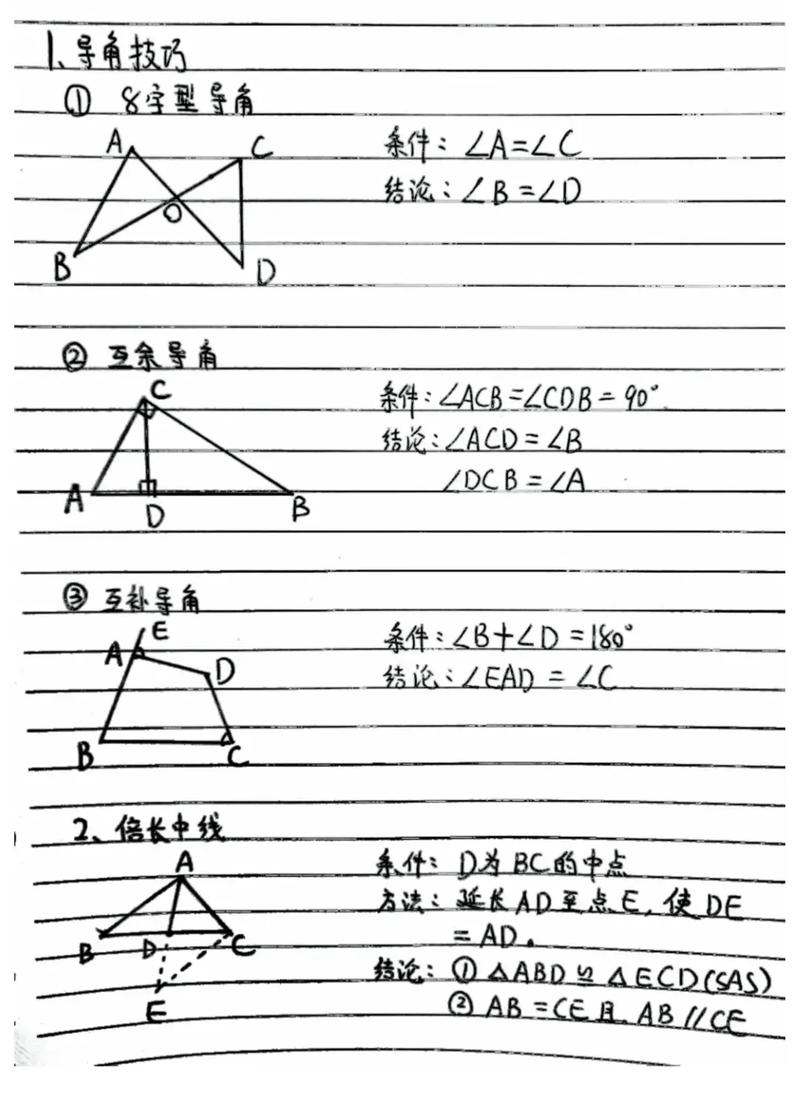 1、导角技巧
① 8字型导角
A C
条件：∠A=∠C
结论：∠B=∠D
O
B D
② 互余导角
C
条件：∠ACB=∠CDB=90°
结论：∠ACD=∠B
∠DCB=∠A
A D B
③ 互补导角
E
A D
条件：∠B+∠D=180°
结论：∠EAD=∠C
B C
2、倍长中线
A
条件：D为BC的中点
方法：延长AD至点E，使DE
=AD。
B D C
结论：①△ABD≌△ECD(SAS)
②AB=CE且AB∥CE
E